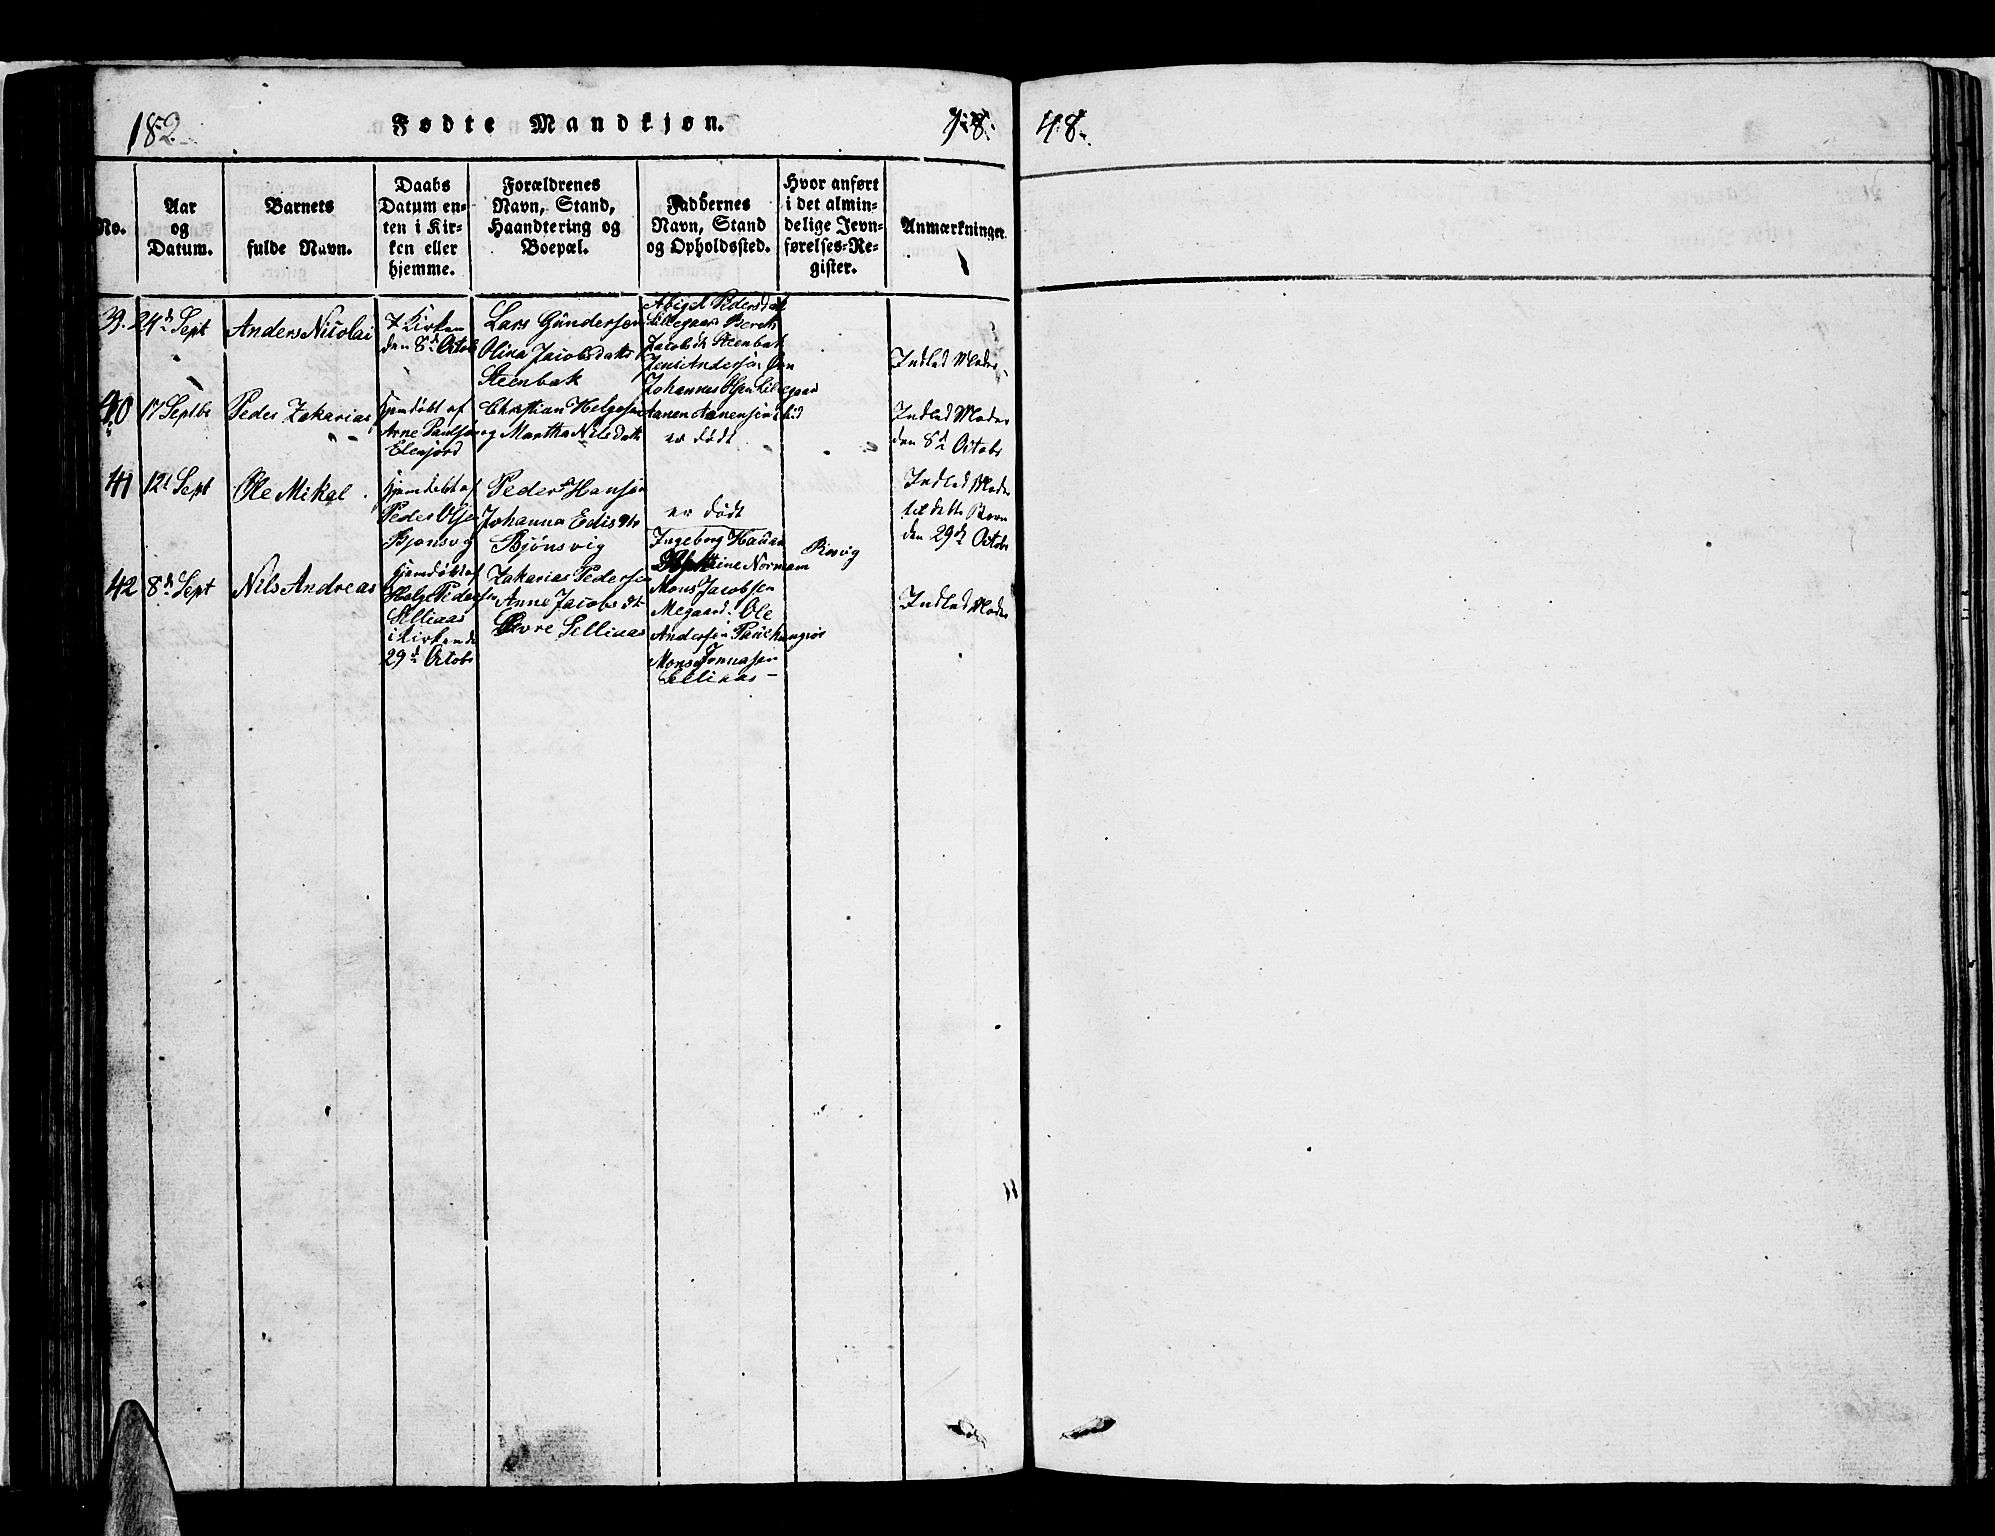 182
Fødte Mandkjøn.
48.
48.
No.
Aar
og
Datum.
Barnets
fulde Navn.
Daabs
Datum en-
ten i Kir-
ken eller
hjemme.
Forældrenes
Navn, Stand,
Haandtering og
Boepæl.
Faddernes
Navn, Stand
og Opholdssted.
Hvor anført
i det almin-
delige Jevn-
førelses-Re-
gister.
Anmærkninger
39. 24de Sept
Anders Nicolai
I Kirken
den 8de Octob
Lars Gundersen
Olina Jacobsdatt
Steenbak
Abigel Pedersdat
Lillegaard Bereth
Jacobsd. Steenbak
Jens Andersen
Johannes Olsen Lillegaard
Indled Moder
40 17 Septbr
Peder Zakarias
hjemdøbt af
Arne Paulsen
Elenjord
Christian Helgesen
og Martha Nilsdatt
er død
Indled Moder
den 8de Octobr
41 12te Sept
Ole Mikal
hjemdøbt af
Peder Olsen
Bjønsvig
Peder Hansen
Johanna Edisdtr
Bjønsvig
er død
Indled Moder
til dette Barn
den 29de Octobr
42 8de Sept
Nils Andreas
hjemdøbt af
Helge Pedersen
Sellinaas
i Kirken d
29de Octobr
Zakarias Pedersen
Anne Jacobsdtr
Øvre Sellinaas
Ingeborg
Mons Jacobsen
Megaard. Ole
Andersen
Mons Jonnasen
Sellinaas
Indled Moder